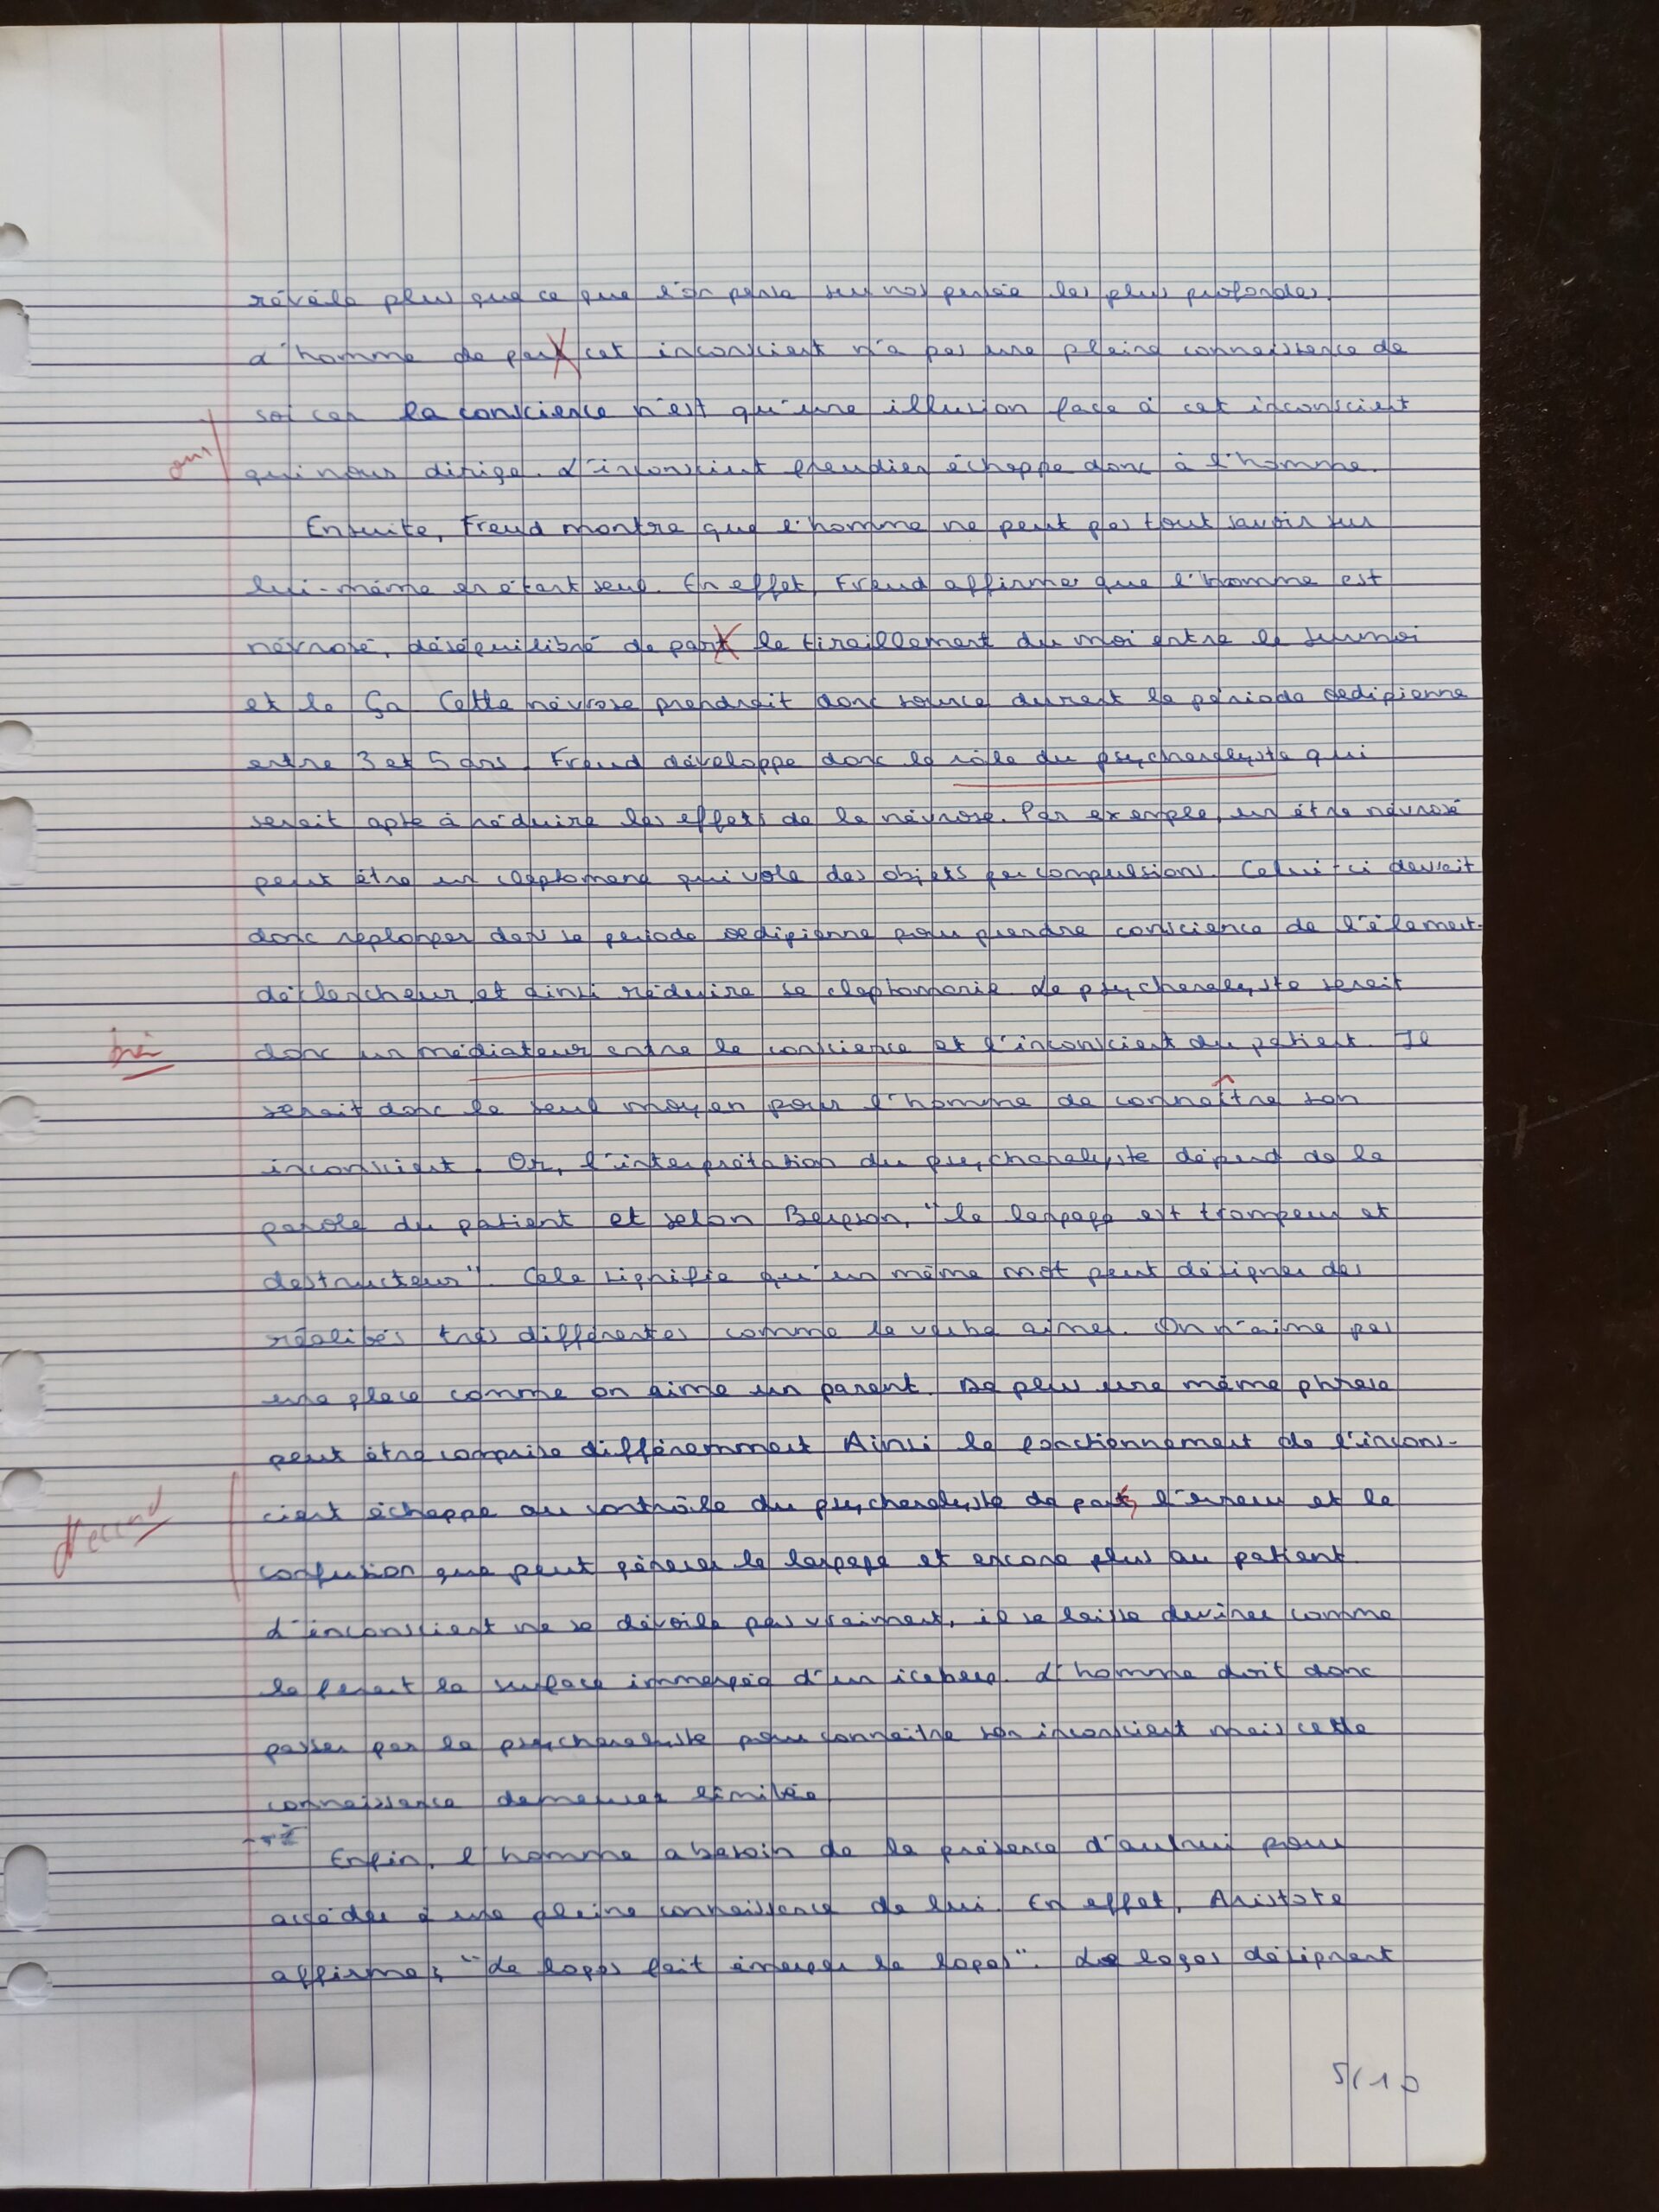 révèle plus que ce que l'on pense sur nos pensée les plus profondes.
L'homme de part cet inconscient n'a pas une pleine connaissance de
soi car la conscience n'est qu'une illusion face à cet inconscient
oui
qui nous dirige. L'inconscient freudien échappe donc à l'homme.
Ensuite, Freud montre que l'homme ne peut pas tout savoir sur
lui-même en étant seul. En effet, Freud affirme que l'homme est
névrosé, déséquilibré de part le tiraillement du moi entre le surmoi
et le Ça. Cette névrose prendrait donc source durant la période oedipienne
entre 3 et 5 ans. Freud développe donc le rôle du psychanalyste qui
serait apte à réduire les effets de la névrose. Par exemple, un être névrosé
peut être un cleptomane qui vole des objets par compulsions. Celui-ci devrait
donc replonger dans sa période oedipienne pour prendre conscience de l'élement-
déclencheur et ainsi réduire sa cleptomanie. Le psychanalyste serait
donc un médiateur entre la conscience et l'inconscient du patient. Il
serait donc le seul moyen pour l'homme de connaître son
inconscient. Or, l'interprétation du psychanalyste dépend de la
parole du patient et selon Bergson, "le langage est trompeur et
destructeur". Cela signifie qu'un même mot peut désigner des
réalités très différentes comme le verbe aimer. On n'aime pas
une glace comme on aime un parent. De plus une même phrase
peut être comprise différemment. Ainsi le fonctionnement de l'incons-
cient échappe au contrôle du psychanalyste de part l'erreur et la
d'accord
confusion que peut générer le langage et encore plus au patient.
L'inconscient ne se dévoile pas vraiment, il se laisse deviner comme
le ferait la surface immergée d'un iceberg. L'homme doit donc
passer par le psychanalyste pour connaître son inconscient mais cette
connaissance demeure limitée
Enfin, l'homme a besoin de la présence d'autrui pour
accéder à une pleine connaissance de lui. En effet, Aristote
affirme: "Le logos fait émerger le logos". Le logos désignant
5/10